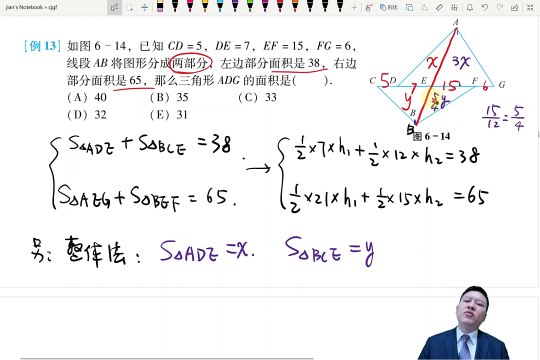 jian's Notebook » cjgf
[例 13] 如图 6-14，已知 CD=5，DE=7，EF=15，FG=6，
线段 AB 将图形分成两部分，左边部分面积是 38，右边
部分面积是 65，那么三角形 ADG 的面积是( ).
(A) 40 (B) 35 (C) 33
(D) 32 (E) 31
A
x 3x
C 5 D 7 E 15 F 6 G
y 5/4 y
B
B
15/12 = 5/4
图 6-14
S△ADE + S△BCE = 38
S△AEG + S△BEF = 65.
→
1/2 × 7 × h₁ + 1/2 × 12 × h₂ = 38
1/2 × 21 × h₁ + 1/2 × 15 × h₂ = 65
另: 整体法: S△ADE = x. S△BCE = y